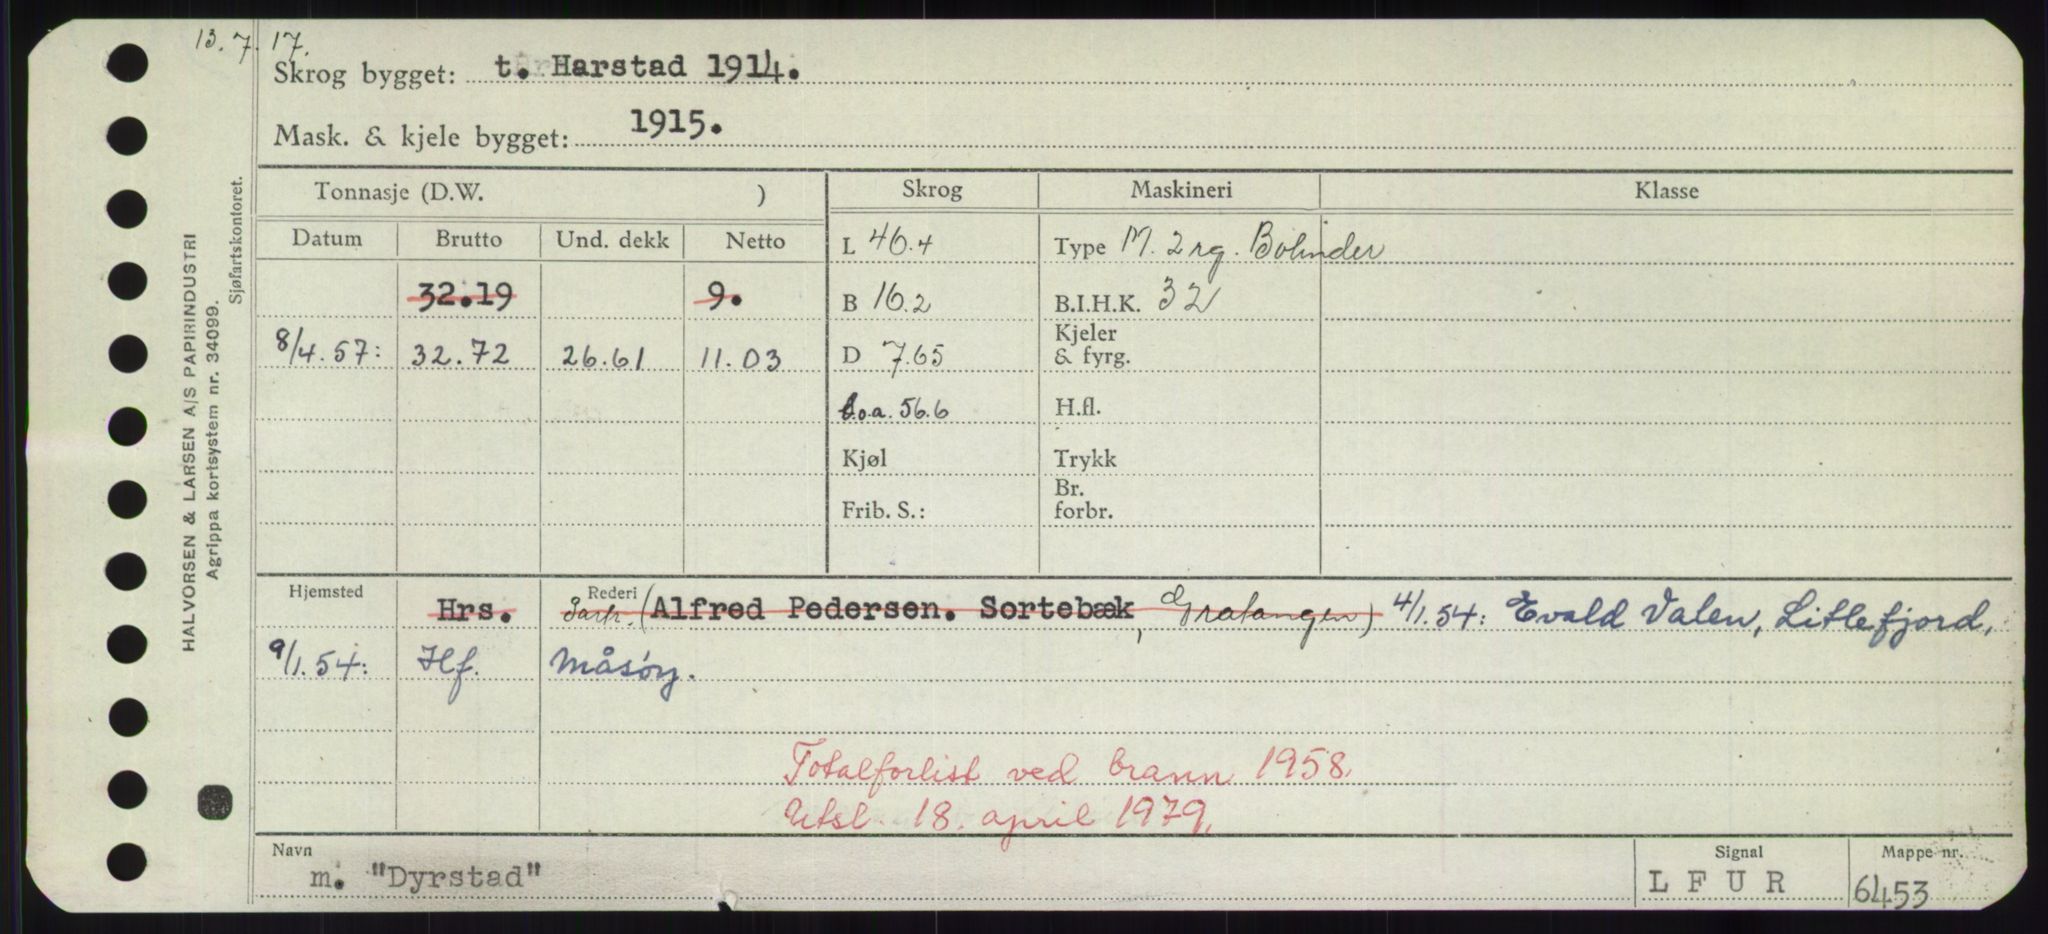 13.7.17.
Skrog bygget: t. Harstad 1914.
Mask. & kjele bygget: 1915.
HALVORSEN & LARSEN A/S PAPIRINDUSTRI
Agrippa kortsystem nr. 34099.
Sjøfartskontoret.
Tonnasje (D.W. ) Skrog Maskineri Klasse
Datum Brutto Und. dekk Netto L 46.4 Type M. 2 rg. Bolinder
32.19 9. B 16.2 B.I.H.K. 32
8/4.57: 32.72 26.61 11.03 D 7.65 Kjeler & fyrg.
l.o.a. 56.6 H.fl.
Kjøl Trykk
Frib. S.: Br. forbr.
Hjemsted Rederi
Hrs. Partr. (Alfred Pedersen. Sortebæk, Gratangen) 4/1.54: Evald Valen, Litlefjord,
9/1.54: Hf. Måsøy.
Totalforlist ved brann 1958.
Utsl. 18. april 1979.
Navn Signal Mappe nr.
m. "Dyrstad" LFUR 6453